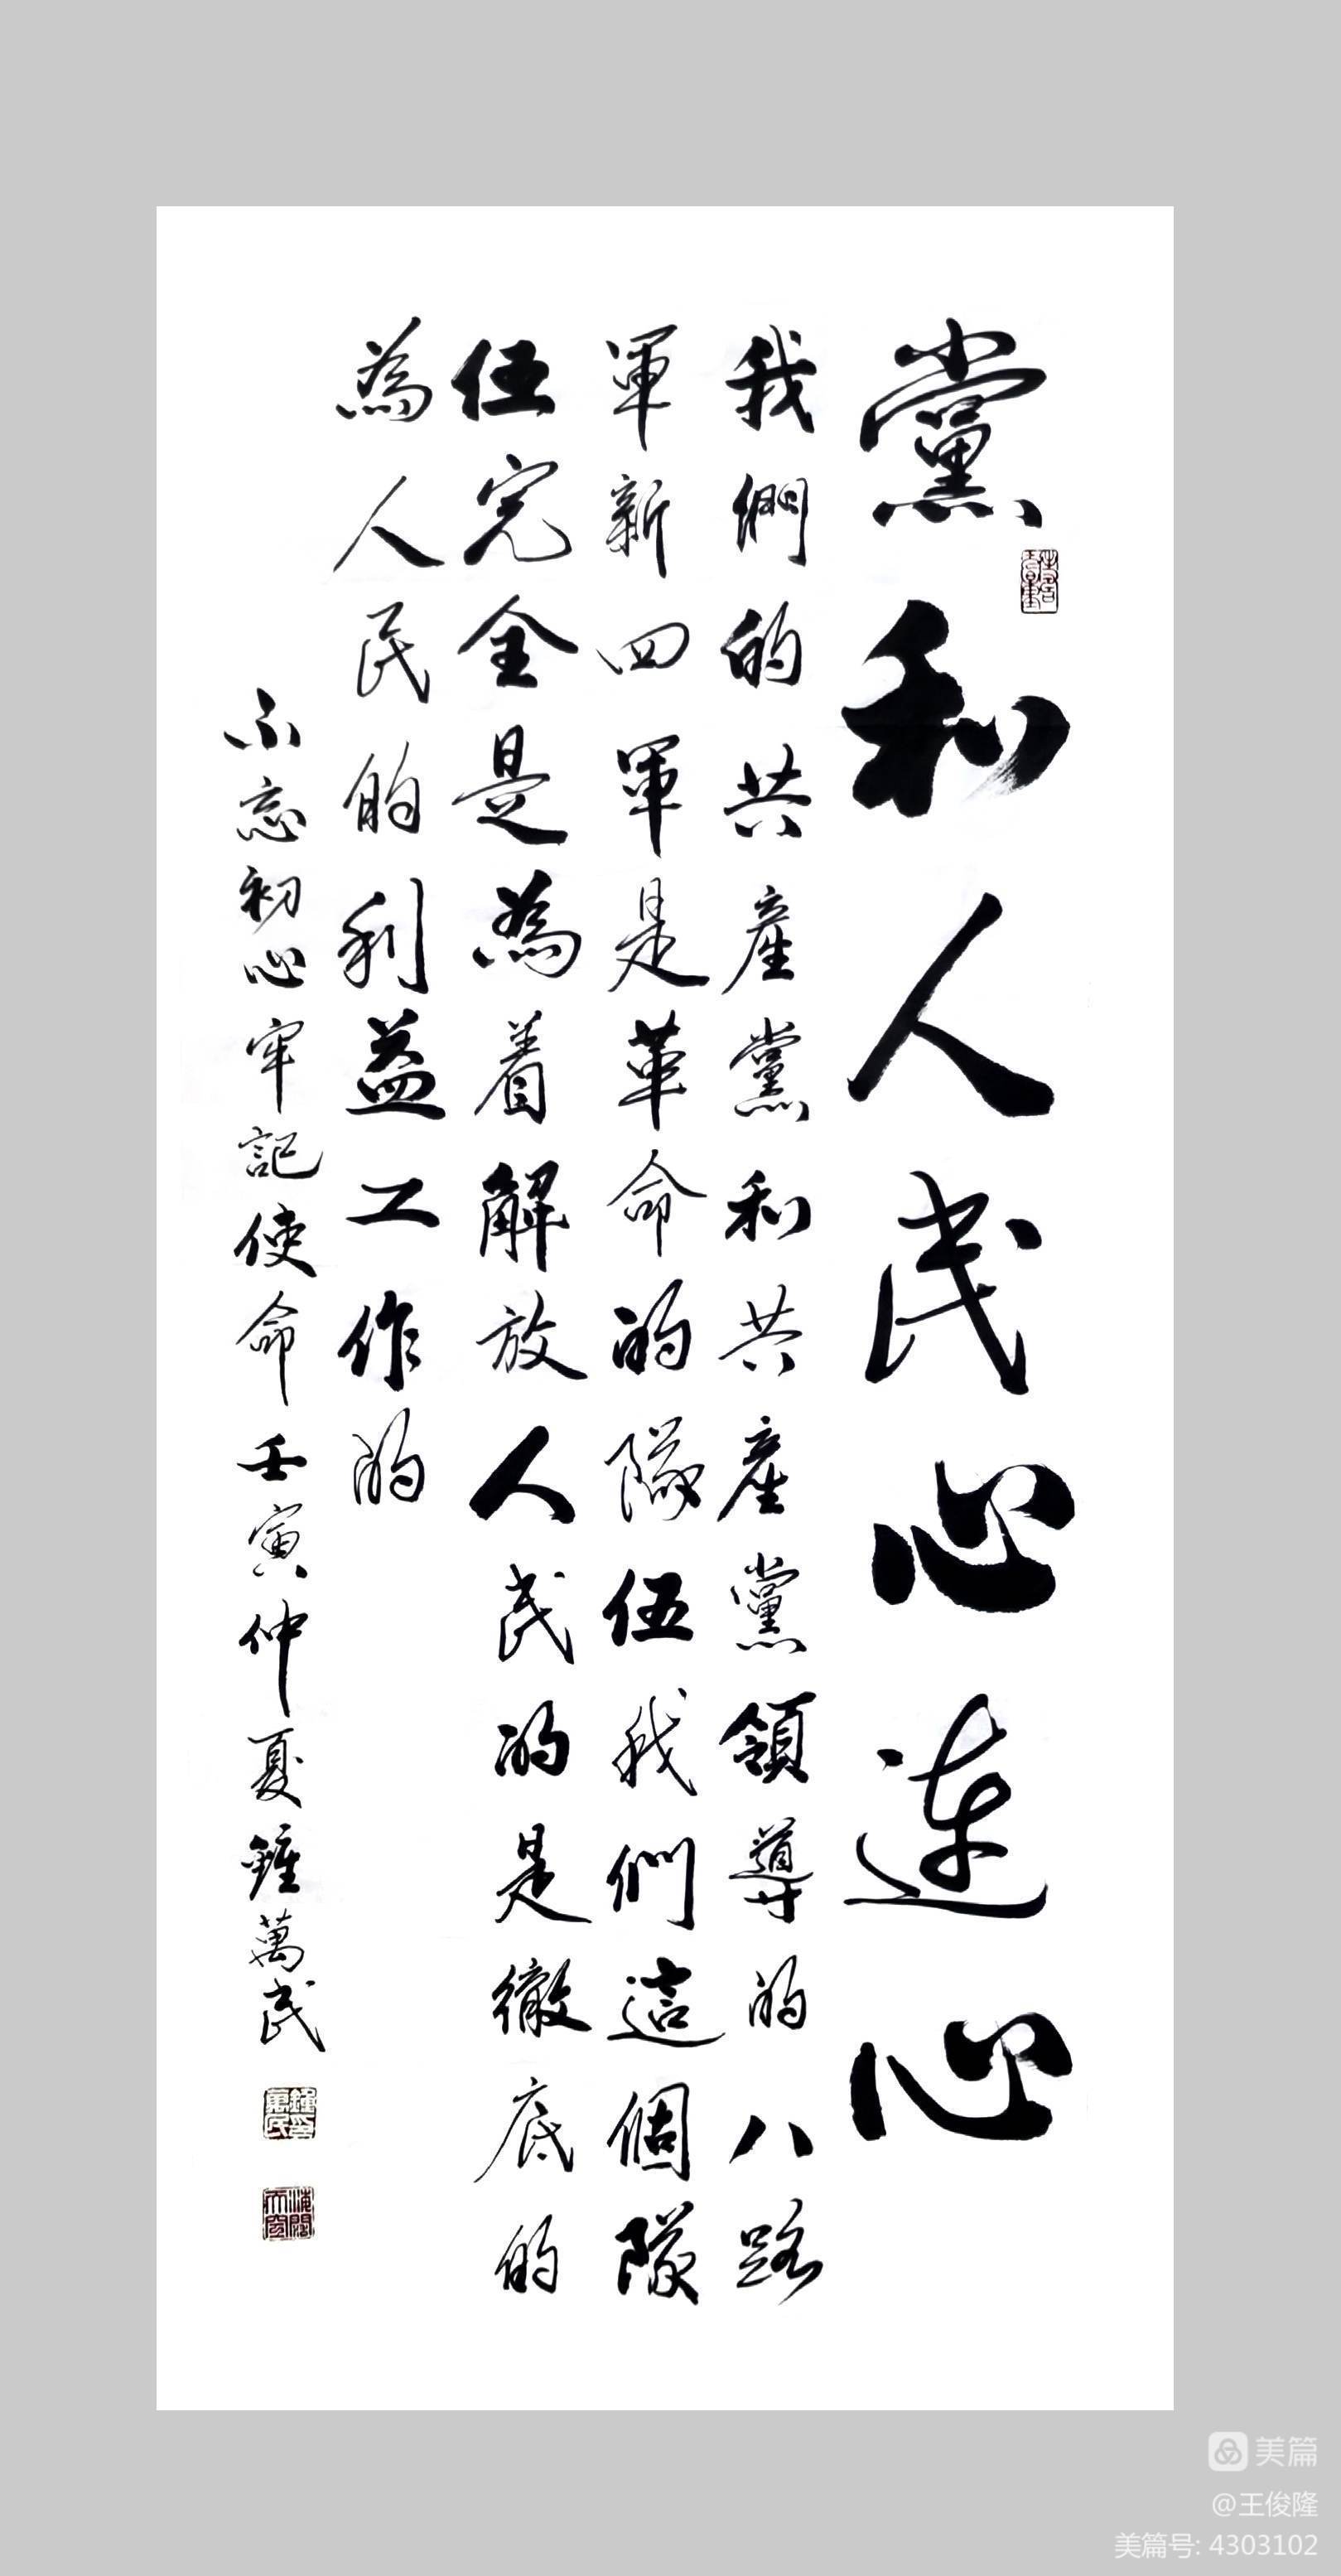 黨和人民心連心
我們的共産黨和共産黨領導的八路
軍新四軍是革命的隊伍我們這個隊
伍完全是為着解放人民的是徹底的
為人民的利益工作的
不忘初心牢記使命壬寅仲夏鍾萬民
美篇
@王俊隆
美篇号: 4303102